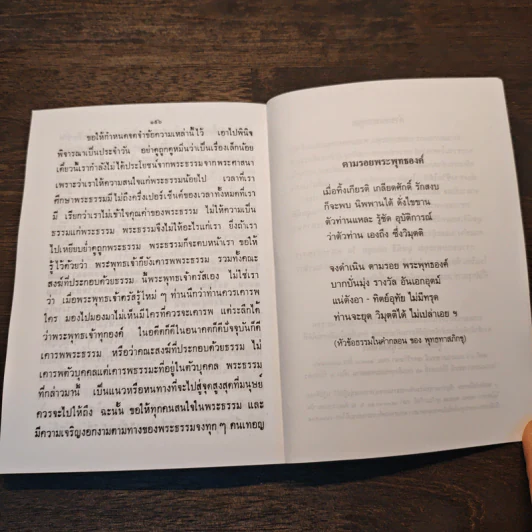 ๑๕๖
ขอให้กำหนดจดจำข้อความเหล่านี้ไว้ เอาไปพินิจ
พิจารณาเป็นประจำวัน อย่าดูถูกดูหมิ่นว่าเป็นเรื่องเล็กน้อย
เดี๋ยวนี้เรากำลังไม่ได้ประโยชน์จากพระธรรมจากพระศาสนา
เพราะว่าเราให้ความสนใจแก่พระธรรมน้อยไป เวลาที่เรา
ศึกษาพระธรรมมีไม่ถึงครึ่งเปอร์เซ็นต์ของเวลาทั้งหมดที่เรา
มี เรียกว่าเราไม่เข้าใจคุณค่าของพระธรรม ไม่ให้ความเป็น
ธรรมแก่พระธรรม พระธรรมจึงไม่ให้อะไรแก่เรา ยิ่งถ้าเรา
ไปเหยียบย่ำดูถูกพระธรรม พระธรรมก็จะตบหน้าเรา ขอให้
รู้ไว้ด้วยว่า พระพุทธเจ้าก็ยังเคารพพระธรรม รวมทั้งคณะ
สงฆ์ที่ประกอบด้วยธรรม นี้พระพุทธเจ้าตรัสเอง ไม่ใช่เรา
ว่า เมื่อพระพุทธเจ้าตรัสรู้ใหม่ ๆ ท่านนึกว่าท่านควรเคารพ
ใคร มองไปมองมาไม่เห็นมีใครที่ควรจะเคารพ แต่ระลึกได้
ว่าพระพุทธเจ้าทุกองค์ ในอดีตก็ดีในอนาคตก็ดีปัจจุบันก็ดี
เคารพพระธรรม หรือว่าคณะสงฆ์ที่ประกอบด้วยธรรม ไม่
เคารพตัวบุคคลแต่เคารพธรรมะที่อยู่ในตัวบุคคล พระธรรม
ที่กล่าวมานี้ เป็นแนวหรือหนทางที่จะไปสู่จุดสูงสุดที่มนุษย์
ควรจะไปให้ถึง ฉะนั้น ขอให้ทุกคนสนใจในพระธรรม และ
มีความเจริญงอกงามตามทางของพระธรรมจงทุก ๆ คนเทอญ
ตามรอยพระพุทธองค์
เมื่อทิ้งเกียรติ เกลียดศักดิ์ รักสงบ
ก็จะพบ นิพพานได้ ดังใจขาน
ตัวท่านแหละ รู้ชัด อุบัติการณ์
ว่าตัวท่าน เองถึง ซึ่งวิมุตติ
จงดำเนิน ตามรอย พระพุทธองค์
บากบั่นมุ่ง รางวัล อันเอกอุตม์
แน่ดังอา - ทิตย์อุทัย ไม่มีทรุด
ท่านจะยุด วิมุตติได้ ไม่เปล่าเอย ฯ
(หัวข้อธรรมในคำกลอน ของ พุทธทาสภิกขุ)